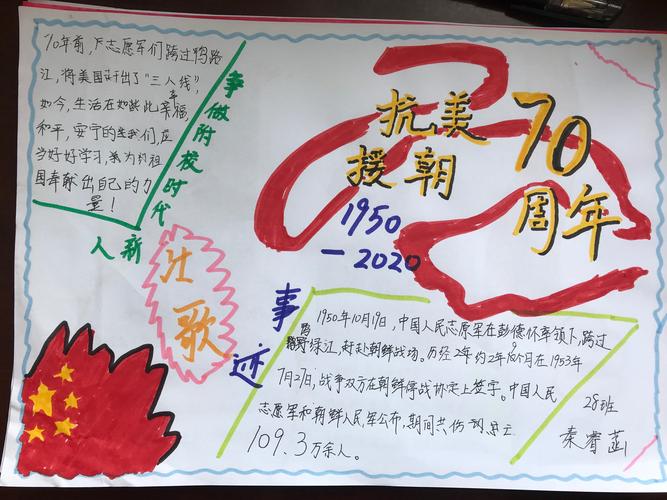 70年前，志愿军们跨过鸭路
江，将美国赶出了“三八线”，
如今，生活在如此幸福，
和平，安宁的我们，应
当好好学习，为祖
国奉献出自己的力
量！
争做附校时代
新人
壮歌
抗美
援朝
70
周年
1950
—2020
事迹
1950年10月19日，中国人民志愿军在彭德怀率领下，跨过
绿江，赶赴朝鲜战场。历经2年约2年9个月在1953年
7月27日，战争双方在朝鲜停战协定上签字。中国人民
志愿军和朝鲜人民军公布，期间共伤
109.3万余人。
28班
秦